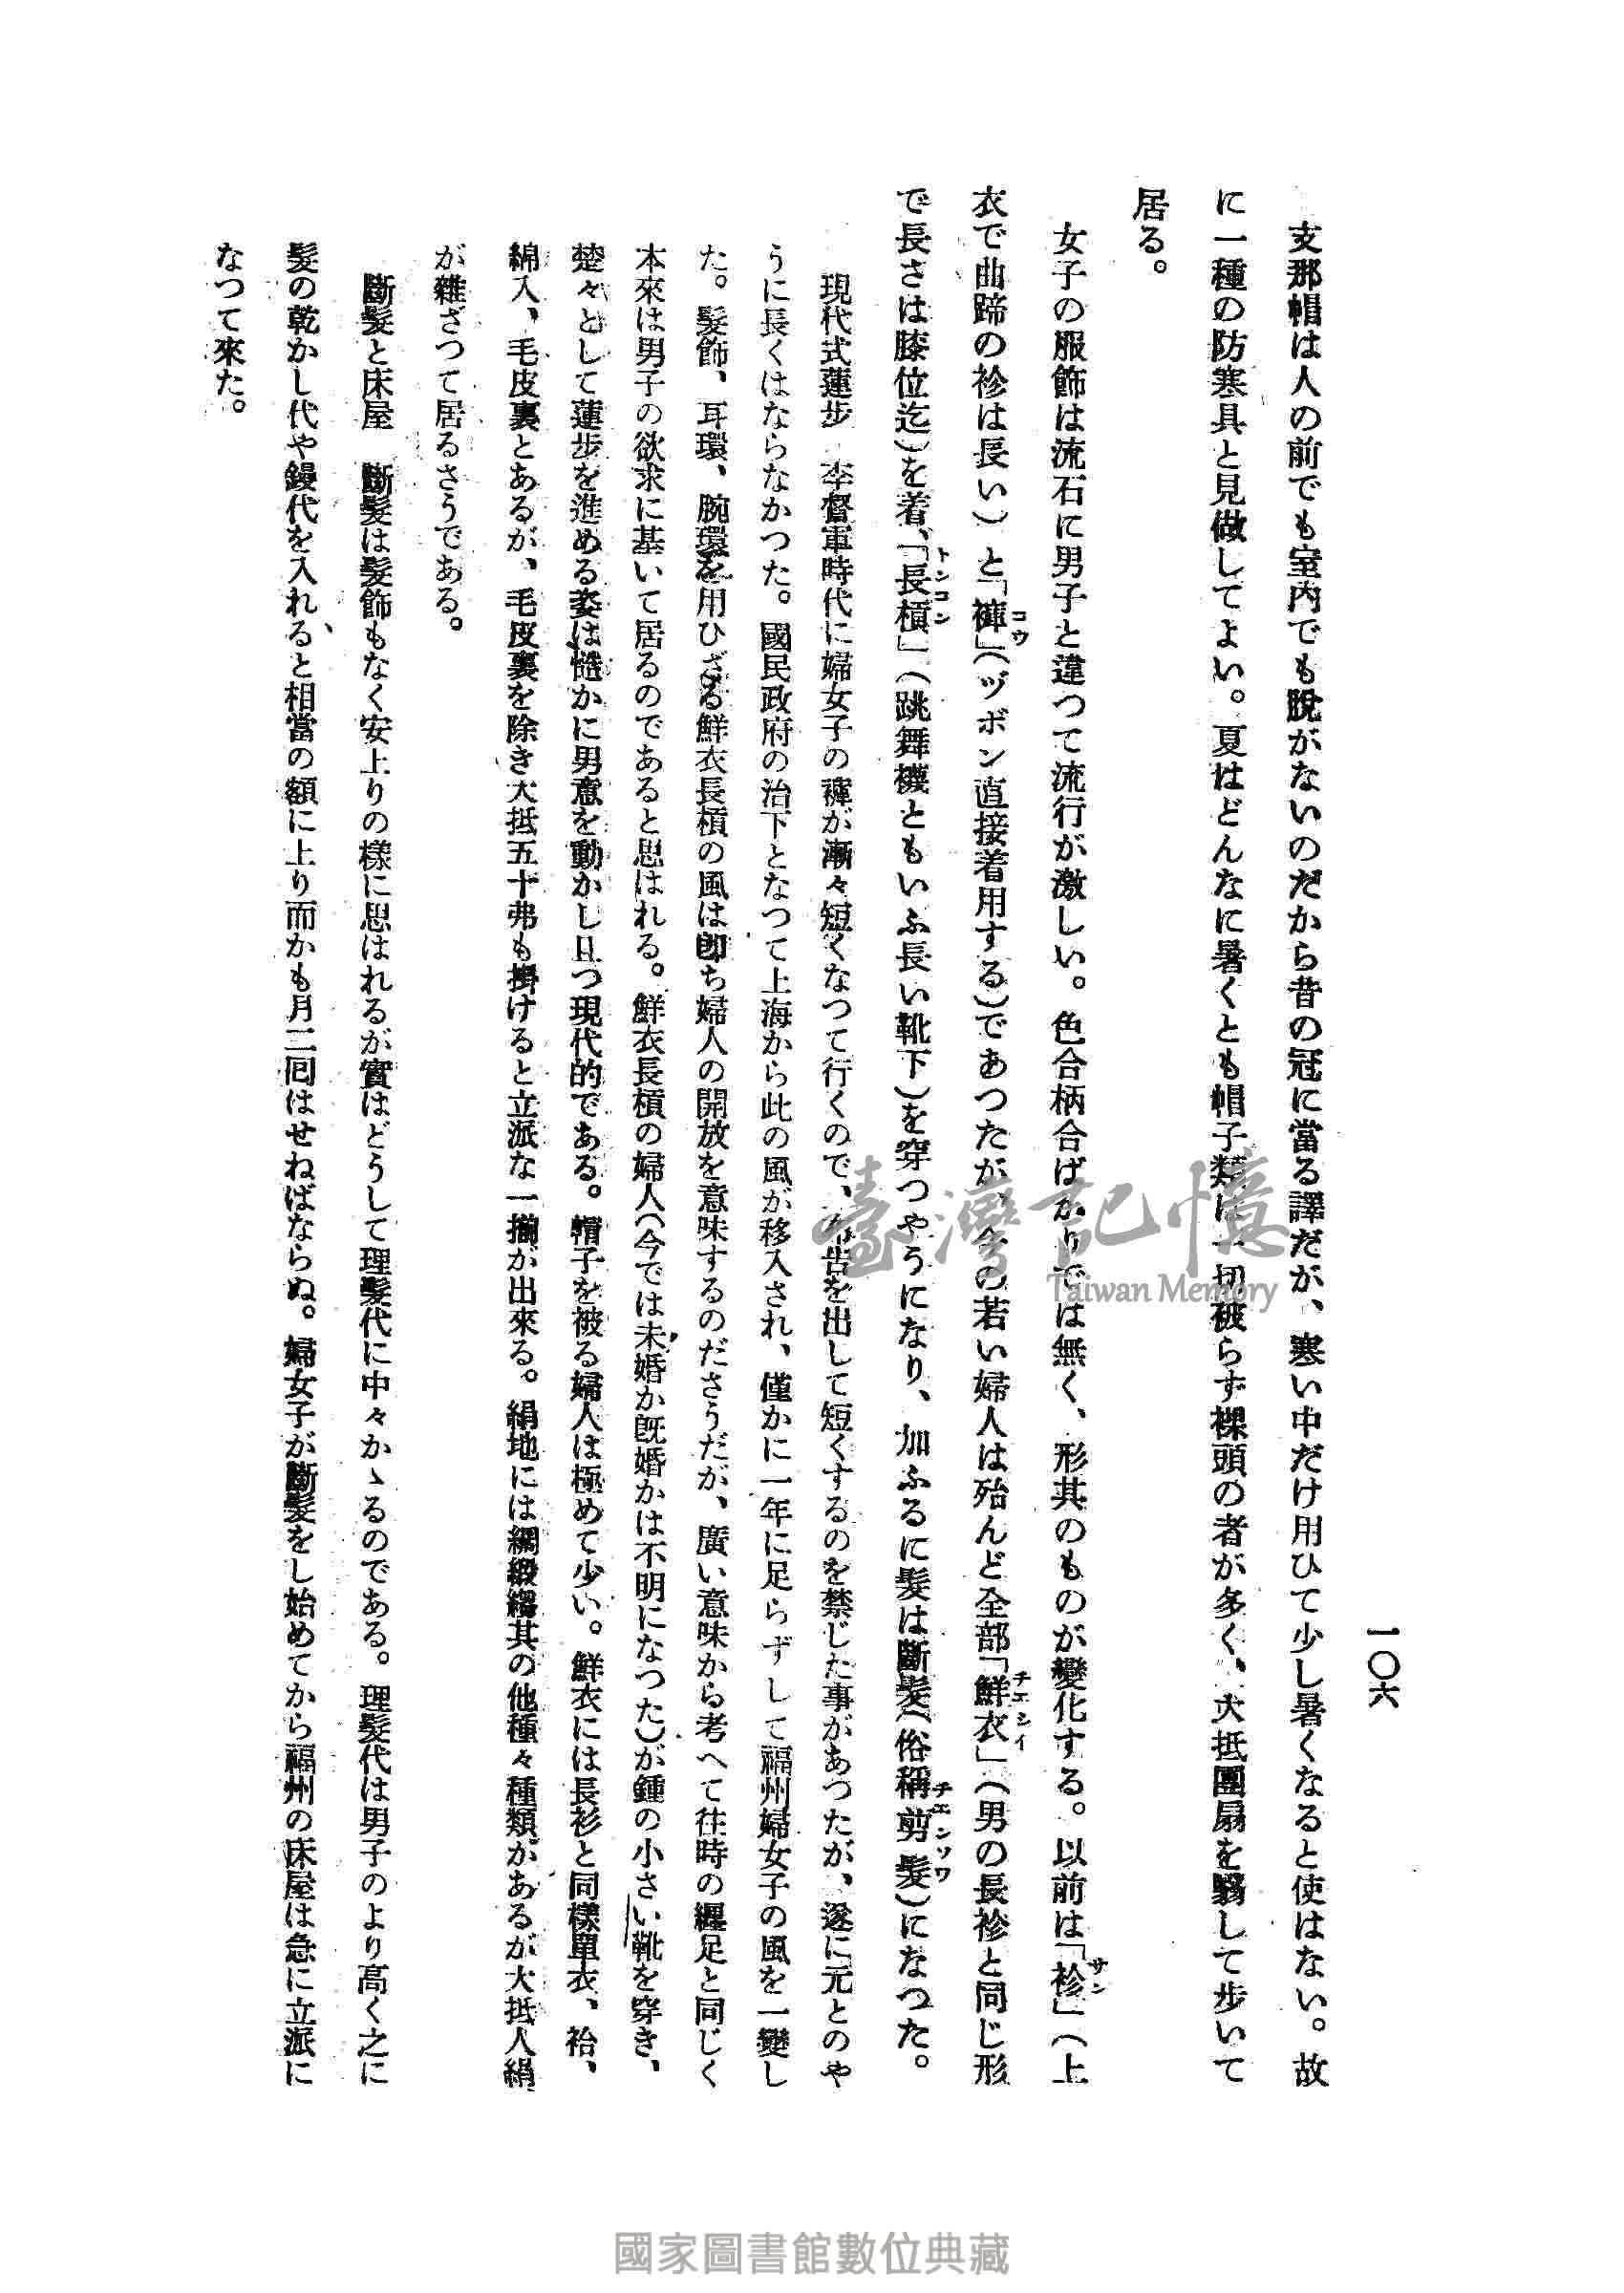 一〇六
支那帽は人の前でも室内でも脫がないのだから昔の冠に當る譯だが、寒い中だけ用ひて少し暑くなると使はない。故
に一種の防寒具と見做してよい。夏はどんなに暑くとも帽子類は一切被らず裸頭の者が多く、大抵團扇を翳して步いて
居る。
女子の服飾は流石に男子と違つて流行が激しい。色合柄合ばかりでは無く、形其のものが變化する。以前は「袗サン」(上
衣で曲蹄の袗は長い)と「褲コウ」(ヅボン直接着用する)であつたが、今の若い婦人は殆んど全部「鮮衣チエシイ」(男の長袗と同じ形
で長さは膝位迄)を着、「長槓トンコン」(跳舞襪ともいふ長い靴下)を穿つやうになり、加ふるに髮は斷髮(俗稱剪髮チエンソワ)になつた。
現代式蓮步 李督軍時代に婦女子の褲が漸々短くなつて行くので、布告を出して短くするのを禁じた事があつたが、遂に元とのや
うに長くはならなかつた。國民政府の治下となつて上海から此の風が移入され、僅かに一年に足らずして福州婦女子の風を一變し
た。髮飾、耳環、腕環を用ひざる鮮衣長槓の風は卽ち婦人の開放を意味するのださうだが、廣い意味から考へて往時の纏足と同じく
本來は男子の欲求に基いて居るのであると思はれる。鮮衣長槓の婦人(今では未婚か既婚かは不明になつた)が鍾の小さい靴を穿き、
楚々として蓮步を進める姿は慥かに男意を動かし且つ現代的である。帽子を被る婦人は極めて少い。鮮衣には長衫と同樣單衣、袷、
綿入、毛皮裏とあるが、毛皮裏を除き大抵五十弗も掛けると立派な一揃が出來る。絹地には綢緞縐其の他種々種類があるが大抵人絹
が雜ざつて居るさうである。
斷髮と床屋 斷髮は髮飾もなく安上りの樣に思はれるが實はどうして理髮代に中々かゝるのである。理髮代は男子のより高く之に
髮の乾かし代や鏝代を入れると相當の額に上り而かも月二回はせねばならぬ。婦女子が斷髮をし始めてから福州の床屋は急に立派に
なつて來た。
臺灣記憶
Taiwan Memory
國家圖書館數位典藏